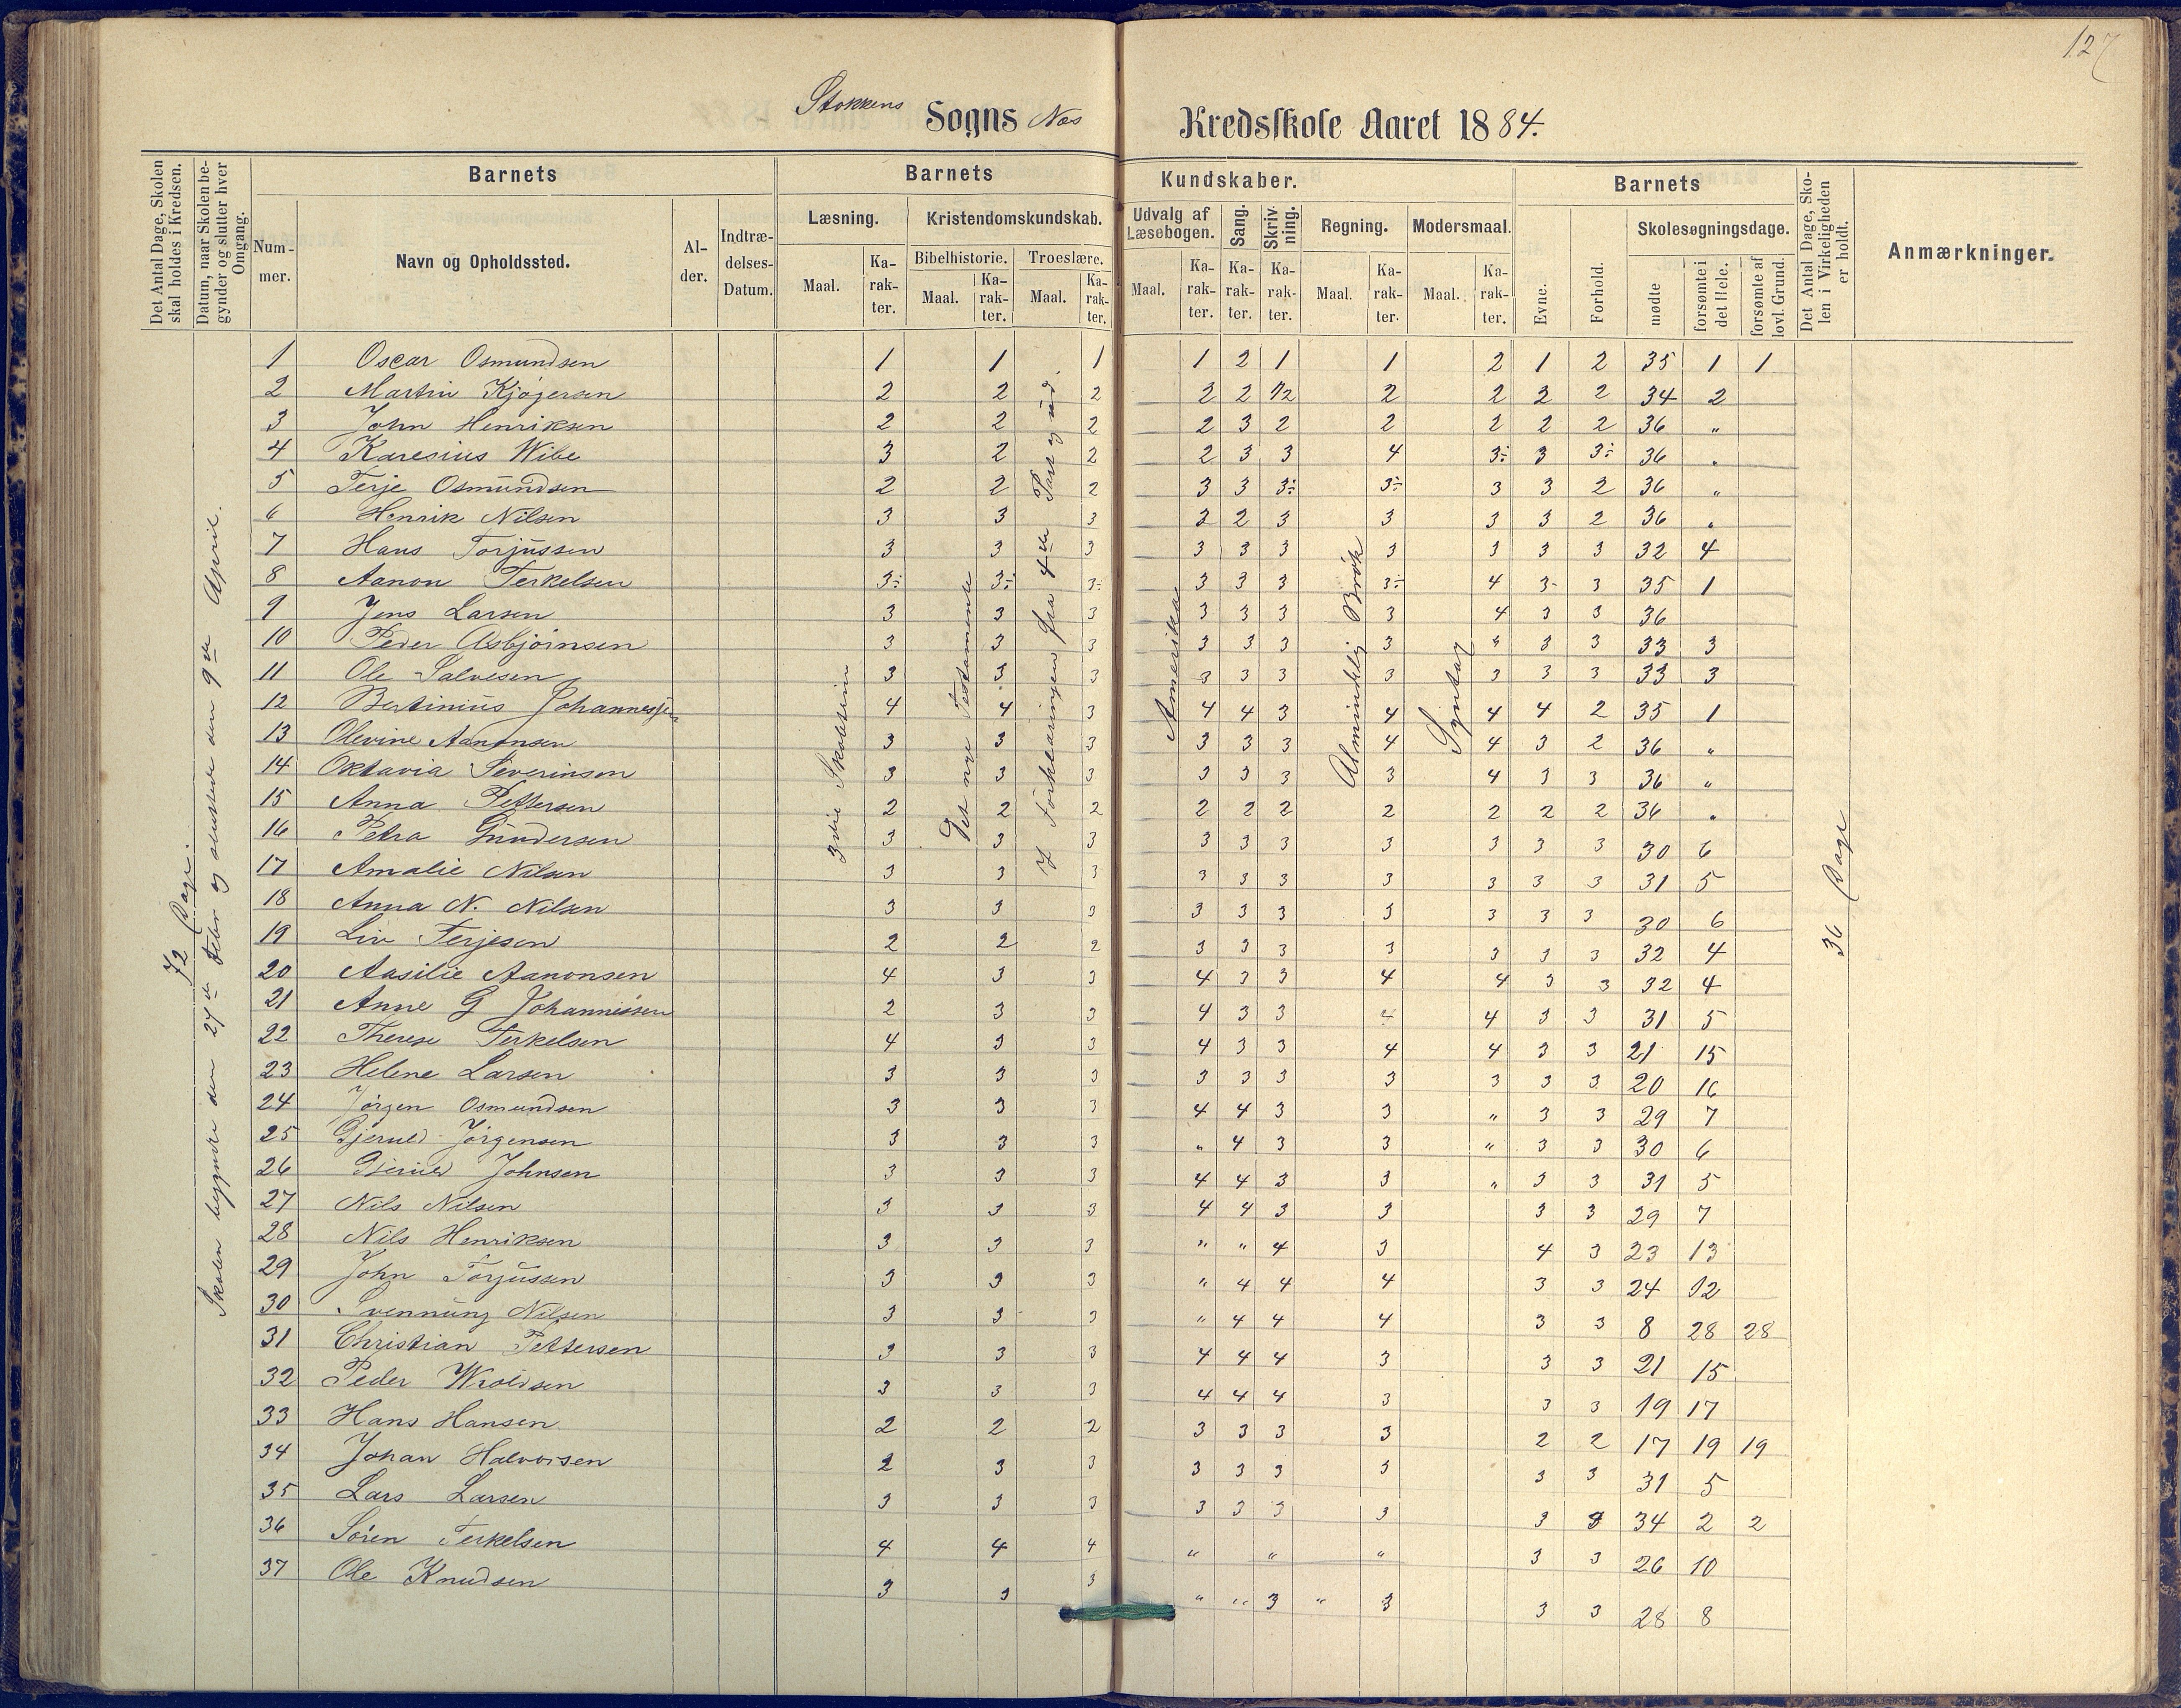 127
Stokkens Sogns Nes Kredsskole Aaret 1884.
Det Antal Dage, Skolen skal holdes i Kredsen.
Datum, naar Skolen begynder og slutter hver Omgang.
Barnets
Nummer.
Navn og Opholdssted.
Alder.
Indtrædelses-Datum.
Barnets Kundskaber.
Læsning.
Maal.
Karakter.
Kristendomskundskab.
Bibelhistorie.
Maal.
Karakter.
Troeslære.
Maal.
Karakter.
Udvalg af Læsebogen.
Maal.
Karakter.
Sang.
Karakter.
Skrivning.
Karakter.
Regning.
Maal.
Karakter.
Modersmaal.
Maal.
Karakter.
Barnets
Evne.
Forhold.
Skolesøgningsdage.
mødte
forsømte i det Hele.
forsømte af lovl. Grund.
Det Antal Dage, Skolen i Virkeligheden er holdt.
Anmærkninger.
72 Dage.
Skolen begyndte den 27de Febr og sluttede den 9de April.
3die Skoletrin
Det nye Testamente
Forklaringen fra 4de Part og ud.
Amerika
Almindelig Brøk
Syntax
36 Dage
1 Oscar Osmundsen 1 1 1 1 2 1 1 2 1 2 35 1 1
2 Martin Kjøgersen 2 2 2 2 2 1/2 2 2 2 2 34 2
3 John Henriksen 2 2 2 2 3 2 2 2 2 2 36 "
4 Karesius Wibe 3 2 2 2 3 3 4 3÷ 3 3÷ 36 "
5 Terje Osmundsen 2 2 2 3 3 3÷ 3÷ 3 3 2 36 "
6 Henrik Nilsen 3 3 3 2 2 3 3 3 3 2 36 "
7 Hans Torjussen 3 3 3 3 3 3 3 3 3 3 32 4
8 Aanon Terkelsen 3÷ 3÷ 3÷ 3 3 3 3÷ 4 3- 3 35 1
9 Jens Larsen 3 3 3 3 3 3 3 4 3 3 36
10 Peder Asbjørnsen 3 3 3 3 3 3 3 " 3 3 33 3
11 Ole Salvesen 3 3 3 3 3 3 3 3 3 3 33 3
12 Bertinius Johannessen 4 4 3 4 4 3 4 4 4 2 35 1
13 Olevine Aanonsen 3 3 3 3 3 3 4 4 3 2 36 "
14 Oktavia Severinsen 3 3 3 3 3 3 3 4 3 3 36 "
15 Anna Pettersen 2 2 2 2 2 2 2 2 2 2 36 "
16 Petra Gundersen 3 3 3 3 3 3 3 3 3 3 30 6
17 Amalie Nilsen 3 3 3 3 3 3 3 3 3 3 31 5
18 Anna N. Nilsen 3 3 3 3 3 3 3 3 3 3 30 6
19 Liv Terjesen 2 2 2 3 3 3 3 3 3 3 32 4
20 Aasilie Aanonsen 4 3 3 4 3 3 4 4 3 3 32 4
21 Anne G Johannessen 2 3 3 4 3 3 4 4 3 3 31 5
22 Therese Terkelsen 4 3 3 4 3 3 4 4 3 3 21 15
23 Helene Larsen 3 3 3 3 3 3 3 3 3 3 20 16
24 Jörgen Osmundsen 3 3 3 4 4 3 3 " 3 3 29 7
25 Gjeruld Jørgensen 3 3 3 " 4 3 3 " 3 3 30 6
26 Gjeruld Johnsen 3 3 3 4 4 3 3 " 3 3 31 5
27 Nils Nilsen 3 3 3 4 4 3 3 3 3 29 7
28 Nils Henriksen 3 3 3 " " 4 3 4 3 23 13
29 John Torjussen 3 3 3 " 4 4 4 3 3 24 12
30 Svennung Nilsen 3 3 3 " 4 4 4 3 3 8 28 28
31 Christian Pettersen 3 3 3 4 4 4 3 3 3 21 15
32 Peder Wroldsen 3 3 3 4 4 4 3 3 3 19 17
33 Hans Hansen 2 2 2 3 3 3 3 2 2 17 19 19
34 Johan Halvorsen 2 3 3 3 3 3 3 3 3 31 5
35 Lars Larsen 3 3 3 3 3 3 3 3 3 34 2 2
36 Sören Terkelsen 4 4 4 " " " 3 3 26 10
37 Ole Knudsen 3 3 3 " " 3 " 3 3 3 28 8